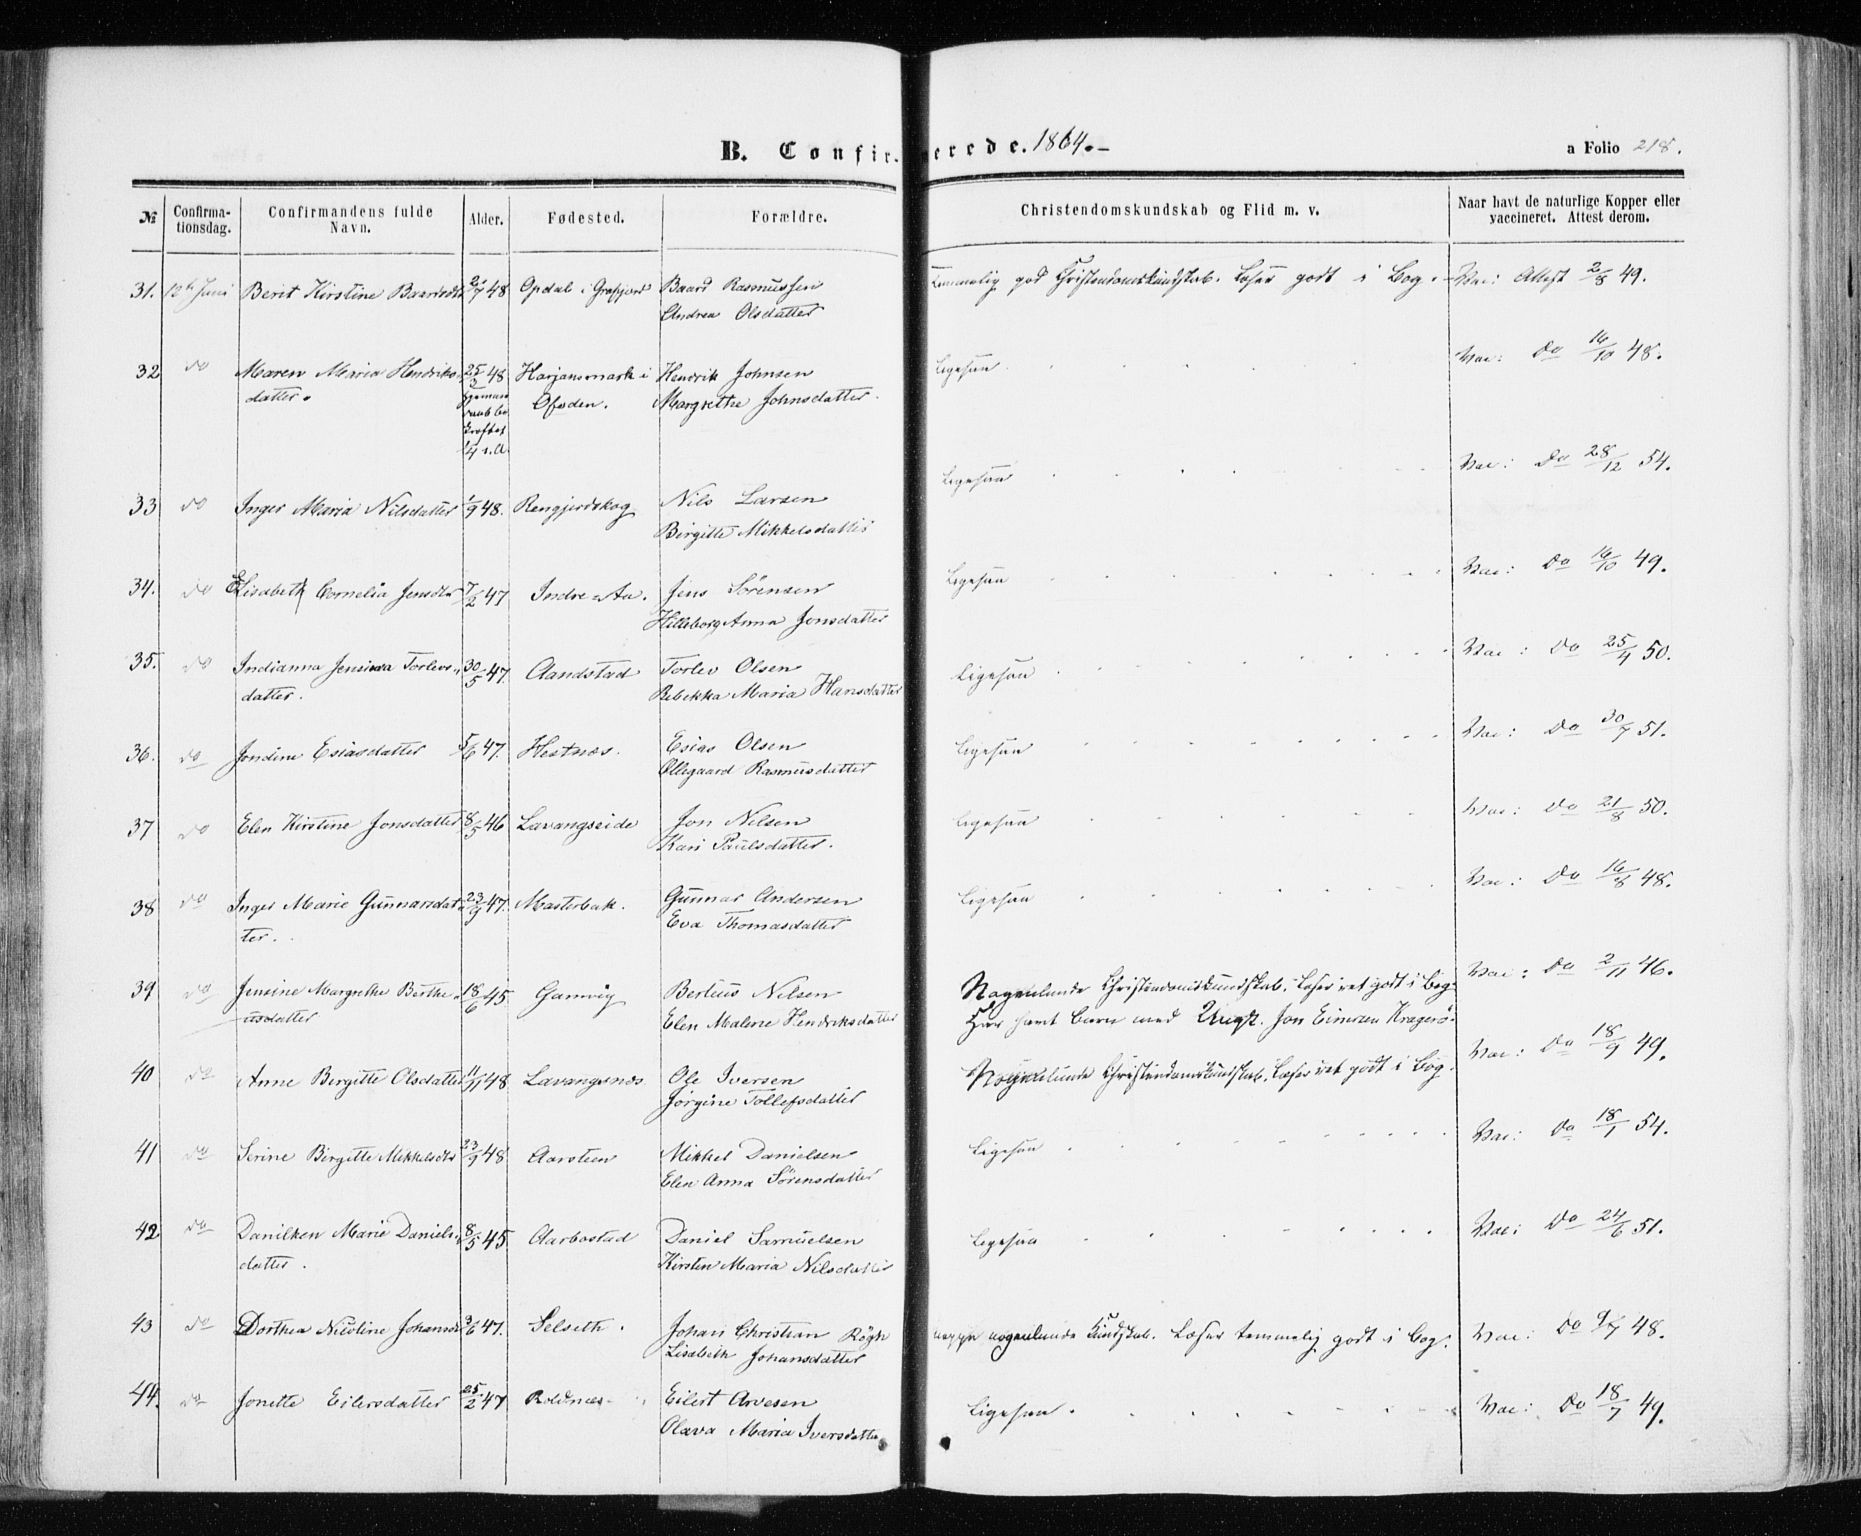 B. Confirmerede. 1864.-
a Folio 218.
№
Confirma-
tionsdag.
Confirmandens fulde
Navn.
Alder.
Fødested.
Forældre.
Christendomskundskab og Flid m. v.
Naar havt de naturlige Kopper eller
vaccineret. Attest derom.
31. 12te Juni Berit Kirstine Baardsdtr 48 Opdal i Baard Rasmussen temmelig god Christendomskundskab. Læser godt i Bog. Vac: Attest 2/8 49.
Andrea Olsdatter
32 do Maren Maria Hendriks- 25/3 48 Harjansmark i Hendrik Johnsen Ligesaa Vac: Do 16/10 48.
datter. Ofoden. Margrethe Johnsdatter.
33 do Inger Maria Nilsdatter 1/9 48. Rengjerdskog Nils Larsen Ligesaa Vac: Do 28/12 54.
Birgitte Mikkelsdatter
34. do Elisabeth Cornelia Jensdtr 7/2 47 Indre-Aa. Jens Sörensen Ligesaa Vac: Do 16/10 49.
Hilleborg Anna Jonsdatter
35. do Indianna Torlevs- 30/5 47. Aandstad Torlev Olsen Ligesaa Vac: Do 25/4 50.
datter. Rebekka Maria Hansdatter
36. do Jondine Esiasdatter 5/6 47. Hestnæs. Esias Olsen Ligesaa Vac: Do 30/7 51.
Ollegaard Rasmusdatter
37 do Elen Kirstine Jonsdatter 8/5 46 Lavangseide Jon Nilsen Ligesaa Vac: Do 21/8 50.
Kari Paulsdatter.
38 do Inger Marie Gunnarsdat- 23/9 47. Masterbak. Gunnar Andersen Ligesaa Vac: Do 16/8 48.
ter. Eva Thomasdatter
39 do Jensine Margrethe Berthe- 18/6 45 Gamvig Berteus Nilsen Nogenlunde Christendomskundskab. Læser ret godt i Bog. Vac: Do 2/11 46.
usdatter Elen Malene Hendriksdatter Har havt Barn med Ungk. Jon Einersen Kragerö.
40 do Anne Birgitte Olsdatter 11/11 48 Lavangsnæs Ole Iversen Nogenlunde Christendomskundskab. Læser ret godt i Bog. Vac: Do 18/9 49.
Jörgine Tollefsdatter
41 do Serine Birgitte Mikkelsdtr 23/9 48 Aarsteen Mikkel Danielsen Ligesaa Vac: Do 18/1 54.
Elen Anna Sörensdatter
42 do Danilken Marie Daniels- 8/5 45 Aarbostad Daniel Samuelsen Ligesaa Vac: Do 24/6 51.
datter. Kirsten Maria Nilsdatter
43 do Dorthea Nicoline Johansdr 3/6 47. Selseth. Johan Christian Rögh neppe nogenlunde Kundskab. Læser temmelig godt i Bog. Vac: Do 9/7 48.
Lisabeth Johansdatter
44. do Jonette Eilersdatter 25/2 47 Roldnæs Eilert Arvesen Ligesaa. Vac: Do 18/7 49.
Olava Maria Iversdatter